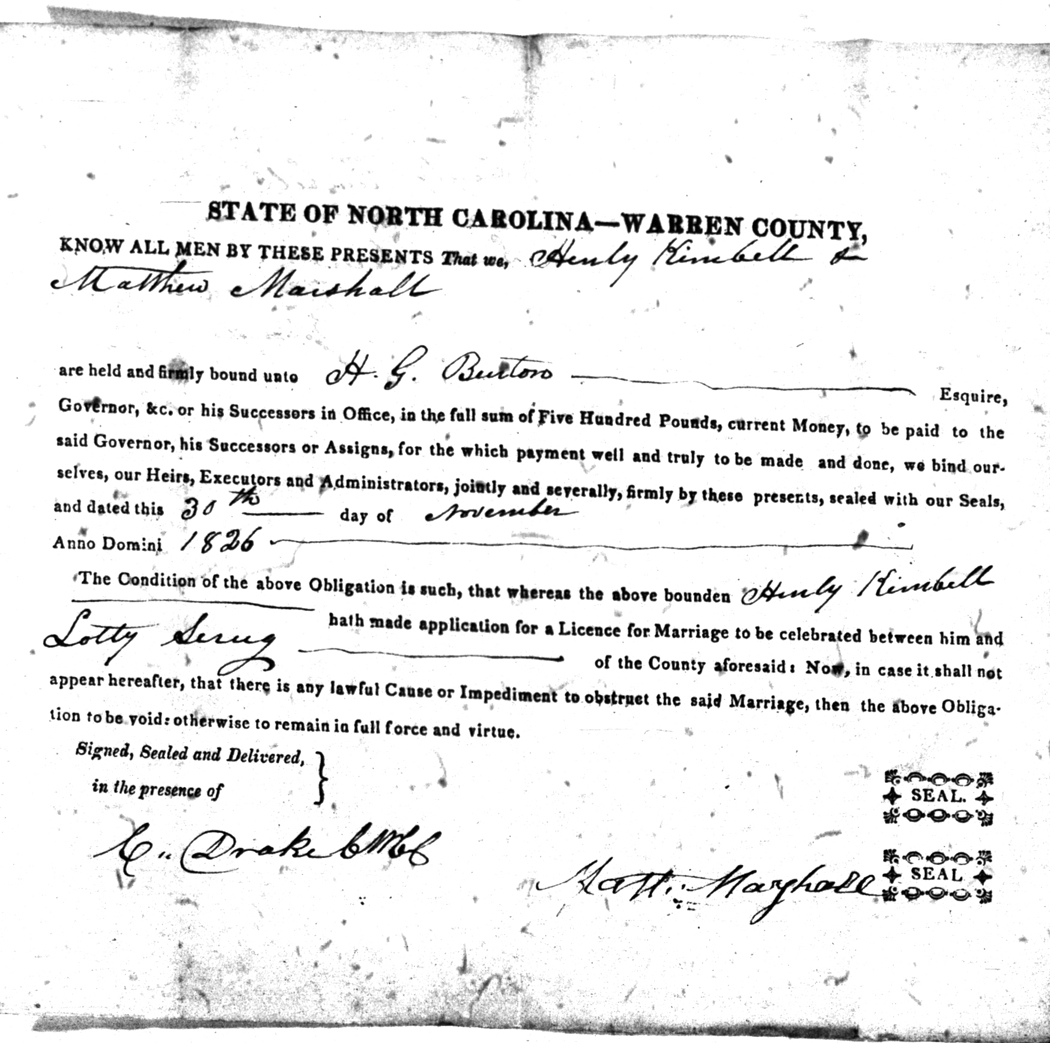 STATE OF NORTH CAROLINA—WARREN COUNTY,
KNOW ALL MEN BY THESE PRESENTS That we, Henly Kimbell &
Matthew Marshall
are held and firmly bound unto H. G. Burton Esquire,
Governor, &c. or his Successors in Office, in the full sum of Five Hundred Pounds, current Money, to be paid to the
said Governor, his Successors or Assigns, for the which payment well and truly to be made and done, we bind our-
selves, our Heirs, Executors and Administrators, jointly and severally, firmly by these presents, sealed with our Seals,
and dated this 30th day of November
Anno Domini 1826
The Condition of the above Obligation is such, that whereas the above bounden Henly Kimbell
hath made application for a Licence for Marriage to be celebrated between him and
Lotty Serug of the County aforesaid: Now, in case it shall not
appear hereafter, that there is any lawful Cause or Impediment to obstruct the said Marriage, then the above Obliga-
tion to be void: otherwise to remain in full force and virtue.
Signed, Sealed and Delivered,
in the presence of
SEAL.
C. Drake CWCC
Matt. Marshall SEAL